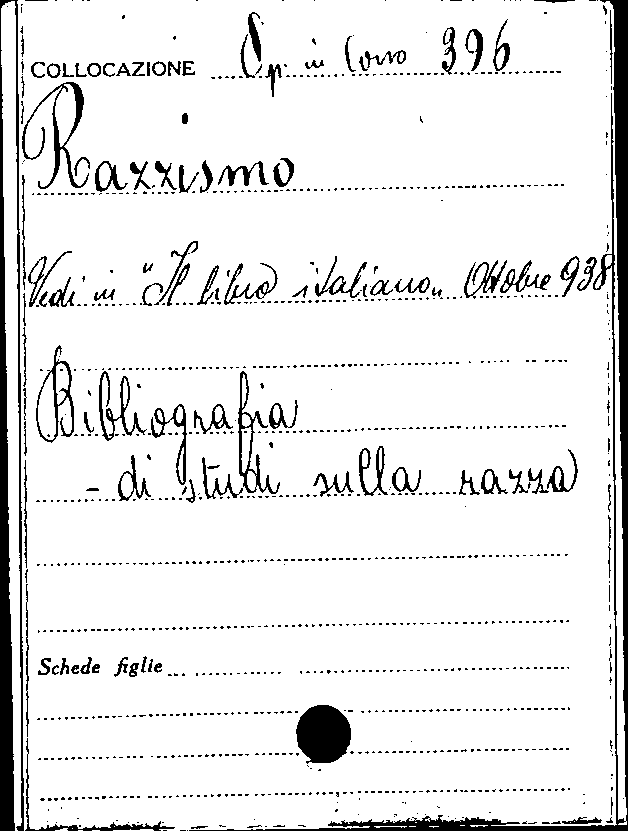 COLLOCAZIONE Op. in Corso 396
Razzismo
Vedi in "Il libro italiano„ Ottobre 938
Bibliografia
- di studi sulla razza
Schede figlie